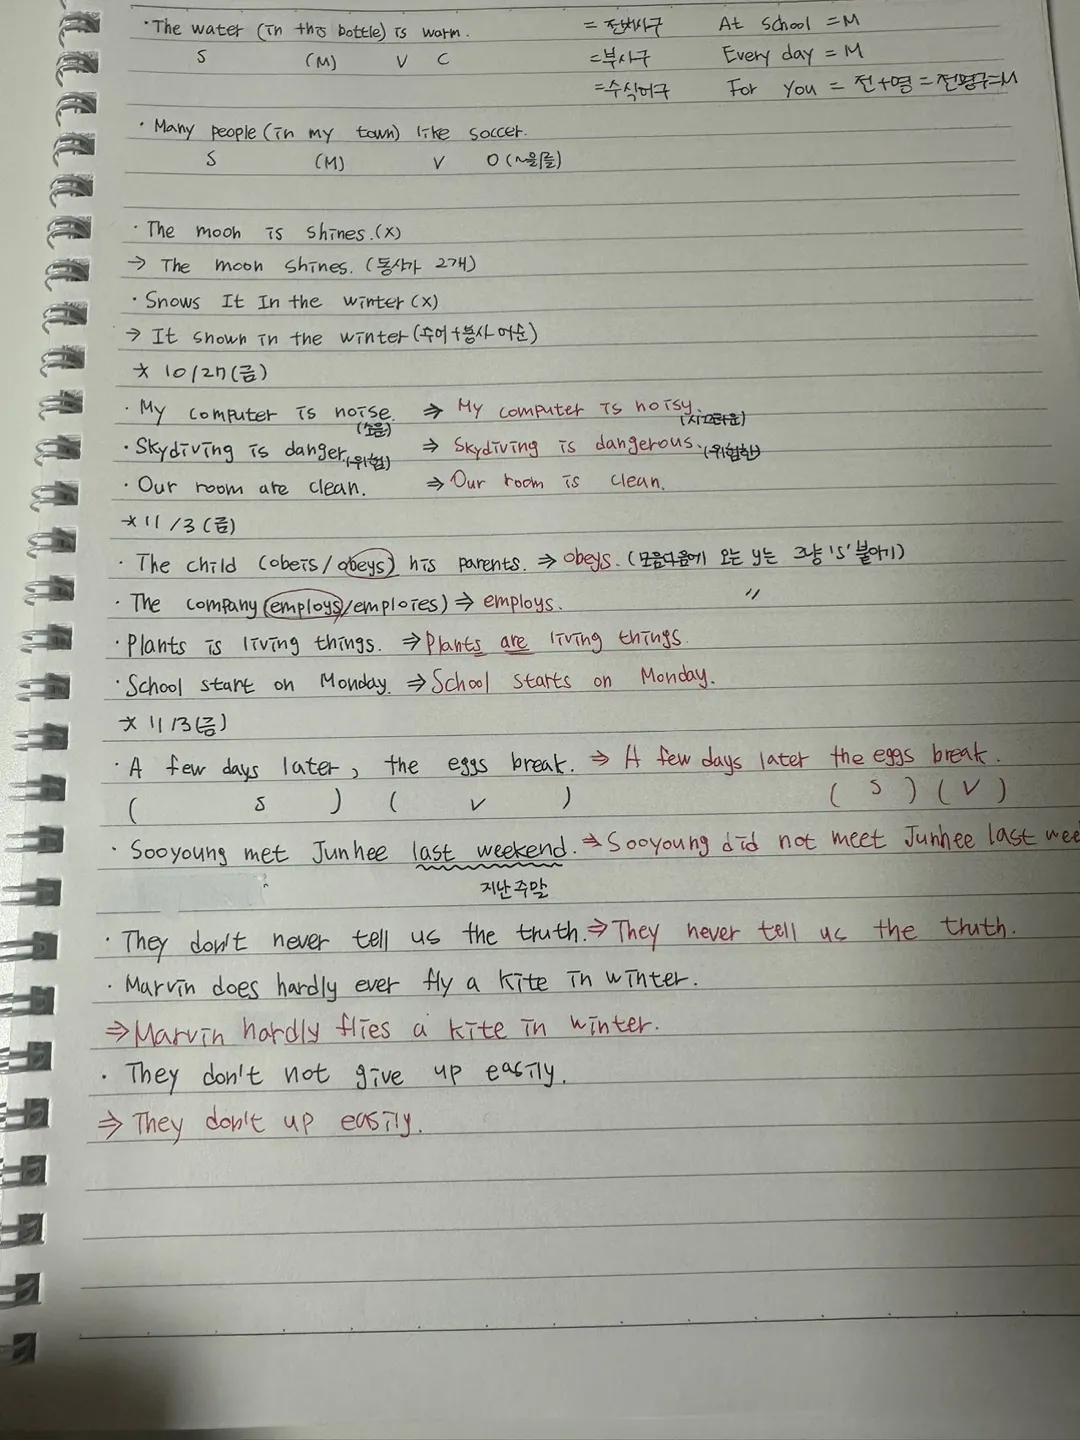 · The water (in this bottle) is warm. = 전명사구 At school = M
S (M) V C = 부사구 Every day = M
= 수식어구 For you = 전+명 = 전명구=M
· Many people (in my town) like soccer.
S (M) V O (~을/를)
· The moon is shines.(x)
→ The moon shines. (동사가 2개)
· Snows It In the winter (x)
→ It snown in the winter (주어+동사 어순)
* 10/27(금)
· My computer is noise. ⇒ My computer is noisy.
(소음) (시끄러운)
· Skydiving is danger. (위험) ⇒ Skydiving is dangerous. (위험한)
· Our room are clean. ⇒ Our room is clean.
* 11/3(금)
· The child (obeis/obeys) his parents. ⇒ obeys. (모음다음에 오는 y는 그냥 's' 붙이기)
· The company (employs/emploies) ⇒ employs. 〃
· Plants is living things. ⇒ Plants are living things.
· School start on Monday. ⇒ School starts on Monday.
* 11/3(금)
· A few days later, the eggs break. ⇒ A few days later the eggs break.
( S ) ( V ) ( S ) ( V )
· Sooyoung met Junhee last weekend. ⇒ Sooyoung did not meet Junhee last wee
지난 주말
· They don't never tell us the truth. ⇒ They never tell us the truth.
· Marvin does hardly ever fly a kite in winter.
⇒ Marvin hardly flies a kite in winter.
· They don't not give up easily.
⇒ They don't up easily.